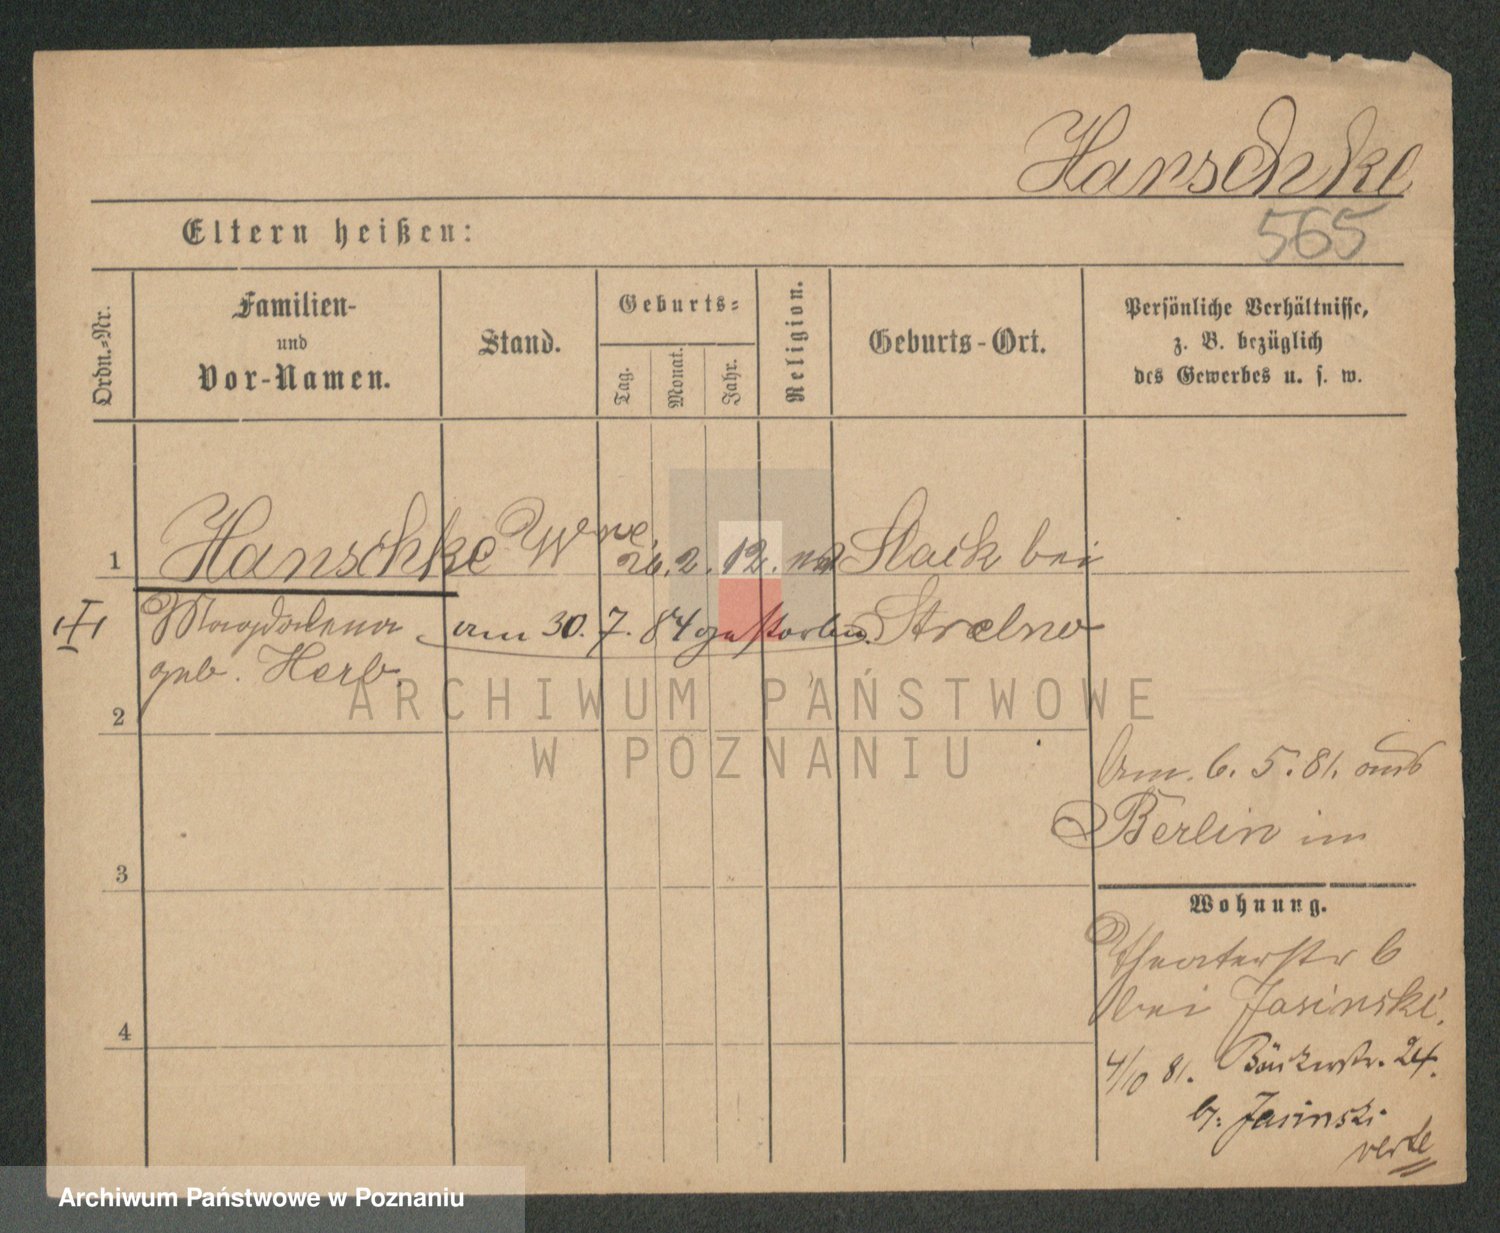 Hanschke
565
Eltern heißen:
Ordn.-Nr.
Familien-
und
Vor-Namen.
Stand.
Geburts-
Tag.
Monat.
Jahr.
Religion.
Geburts-Ort.
Persönliche Verhältnisse,
z. B. bezüglich
des Gewerbes u. s. w.
1 Hanschke Wwe. 26. 2. 12. Slaik bei
Magdalena am 30. 7. 84 gestorben. Strelno
geb. Herb.
2
ARCHIWUM PAŃSTWOWE
W POZNANIU
6. 5. 81. aus
Berlin im
3
Wohnung.
Theaterstr 6
bei Jasinski.
4
4/10 81. Bäckerstr. 24.
b. Jasinski
verte
Archiwum Państwowe w Poznaniu